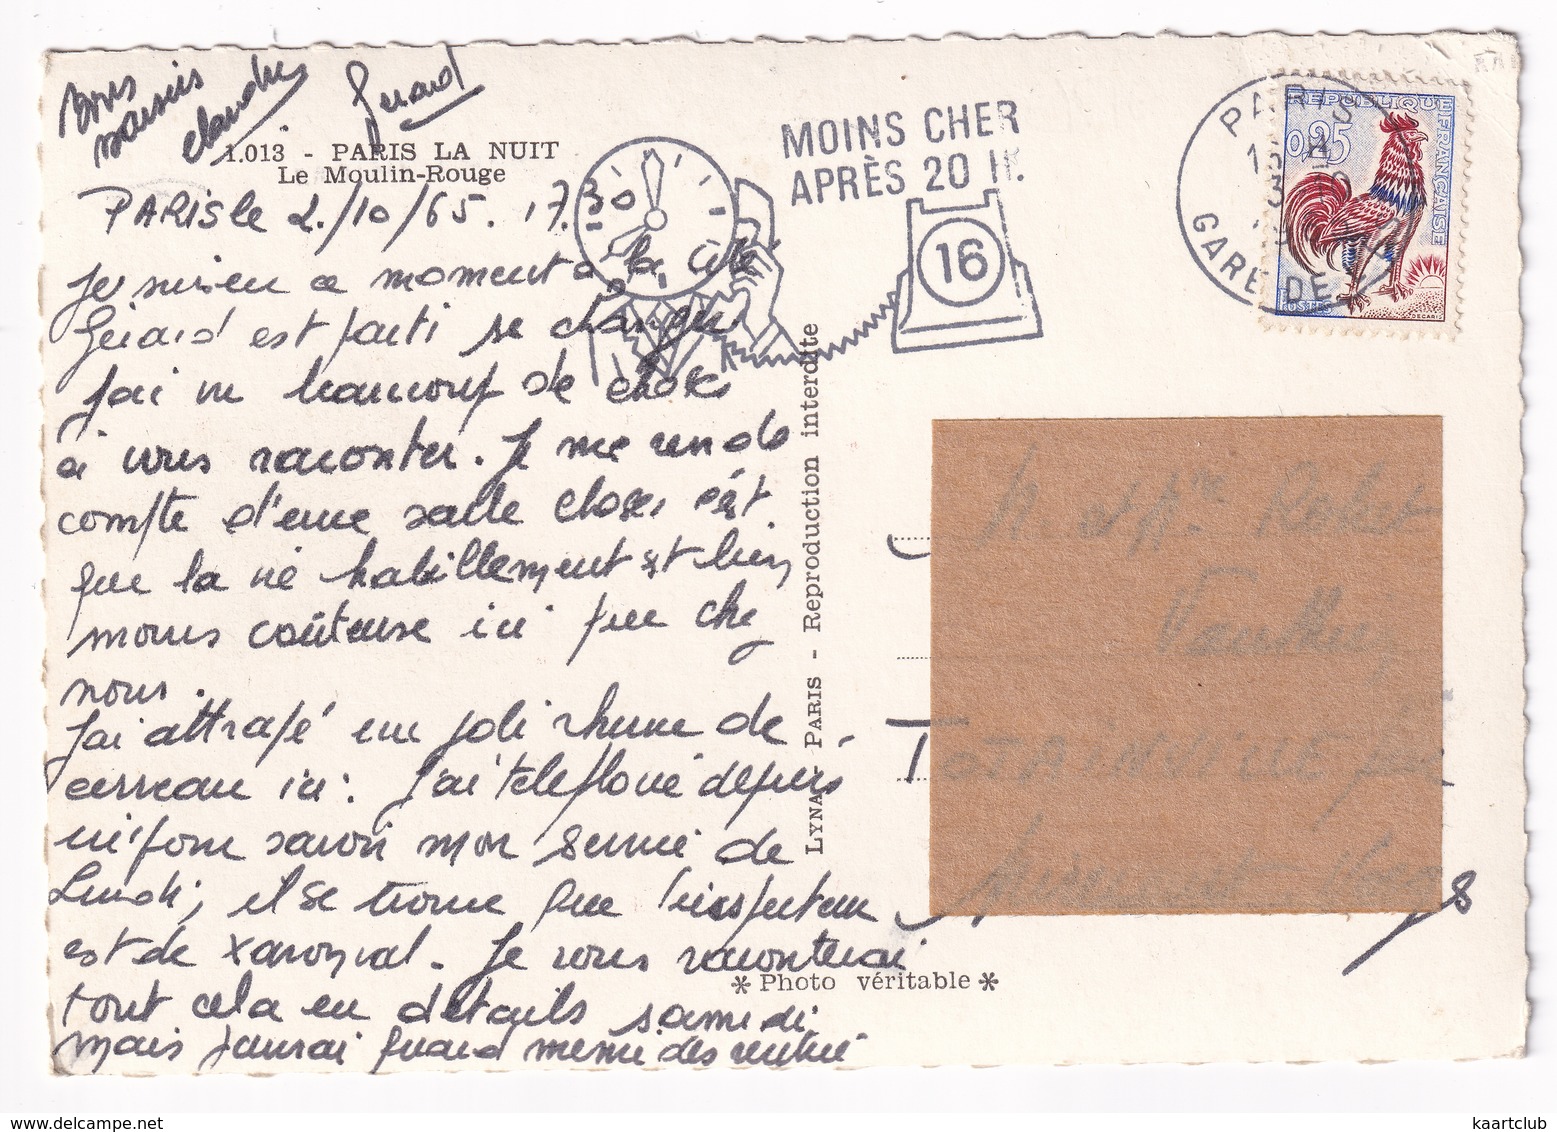 Bons
baisers
Claudie Gérard
1.013 - PARIS LA NUIT
Le Moulin-Rouge
PARIS le 2/10/65. 17.30
Je suis en ce moment à la cité
Gérard est parti se changer
J'ai vu beaucoup de choses
à vous raconter. Je me rends
compte d'une seule chose c'est
que la vie habillement est bien
moins coûteuse ici que chez
nous.
J'ai attrapé un joli rhume de
cerveau ici. J'ai téléphoné depuis
ici pour savoir mon service de
Lundi, il se trouve que l'inspecteur
est de Xaronval. Je vous raconterai
tout cela en détails samedi
mais j'aurai quand même des
MOINS CHER
APRÈS 20 H.
16
PARIS
GARE DE
REPUBLIQUE FRANÇAISE
0,25
POSTES
DECARIS
LYNA - PARIS - Reproduction interdite
M. et Mme Robert
✻ Photo véritable ✻